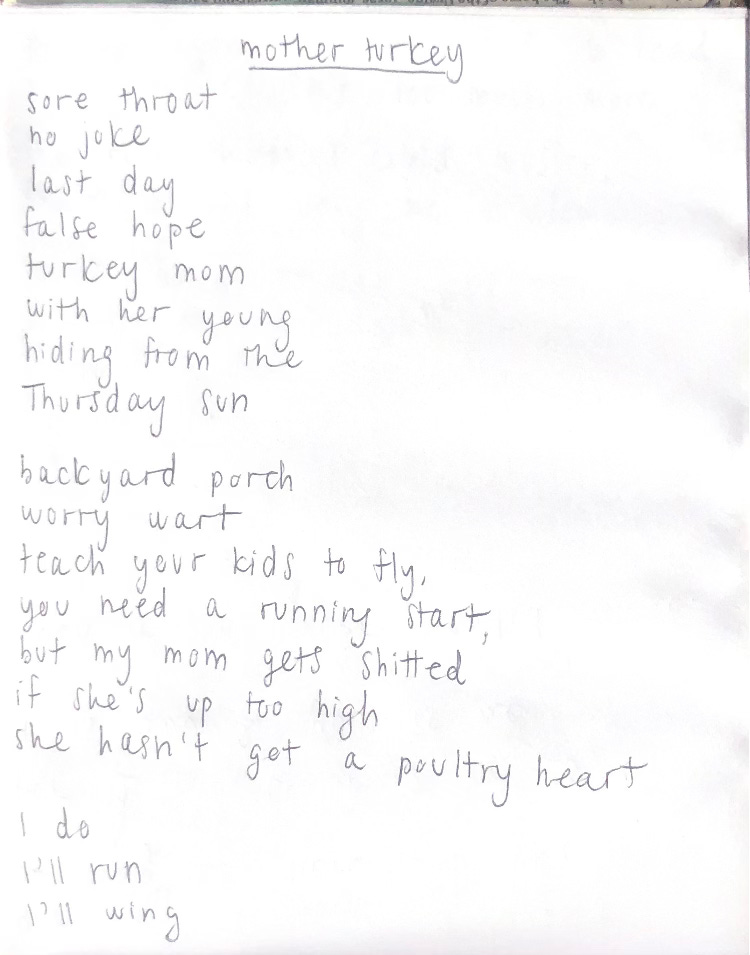 mother turkey
sore throat
no joke
last day
false hope
turkey mom
with her young
hiding from the
Thursday sun
backyard porch
worry wart
teach your kids to fly,
you need a running start,
but my mom gets shitted
if she's up too high
she hasn't got a poultry heart
I do
I'll run
I'll wing